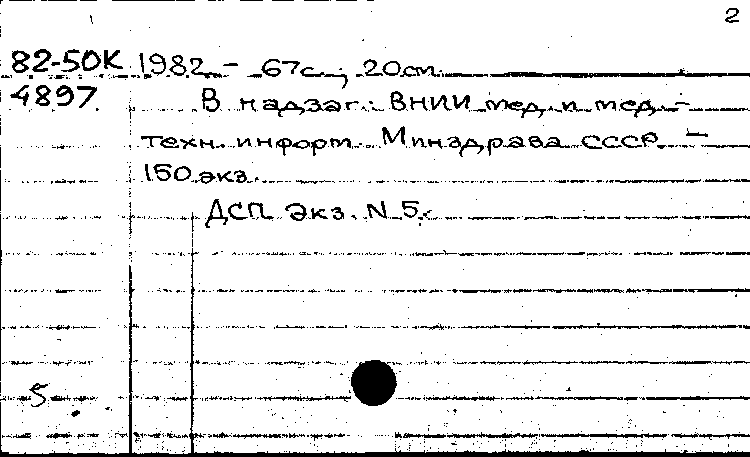 2
82-50К 1982. - 67с.; 20см.
4897 В надзаг.: ВНИИ мед. и мед.-
техн. информ. Минздрава СССР. -
150 экз.
ДСП. Экз. N 5.
5